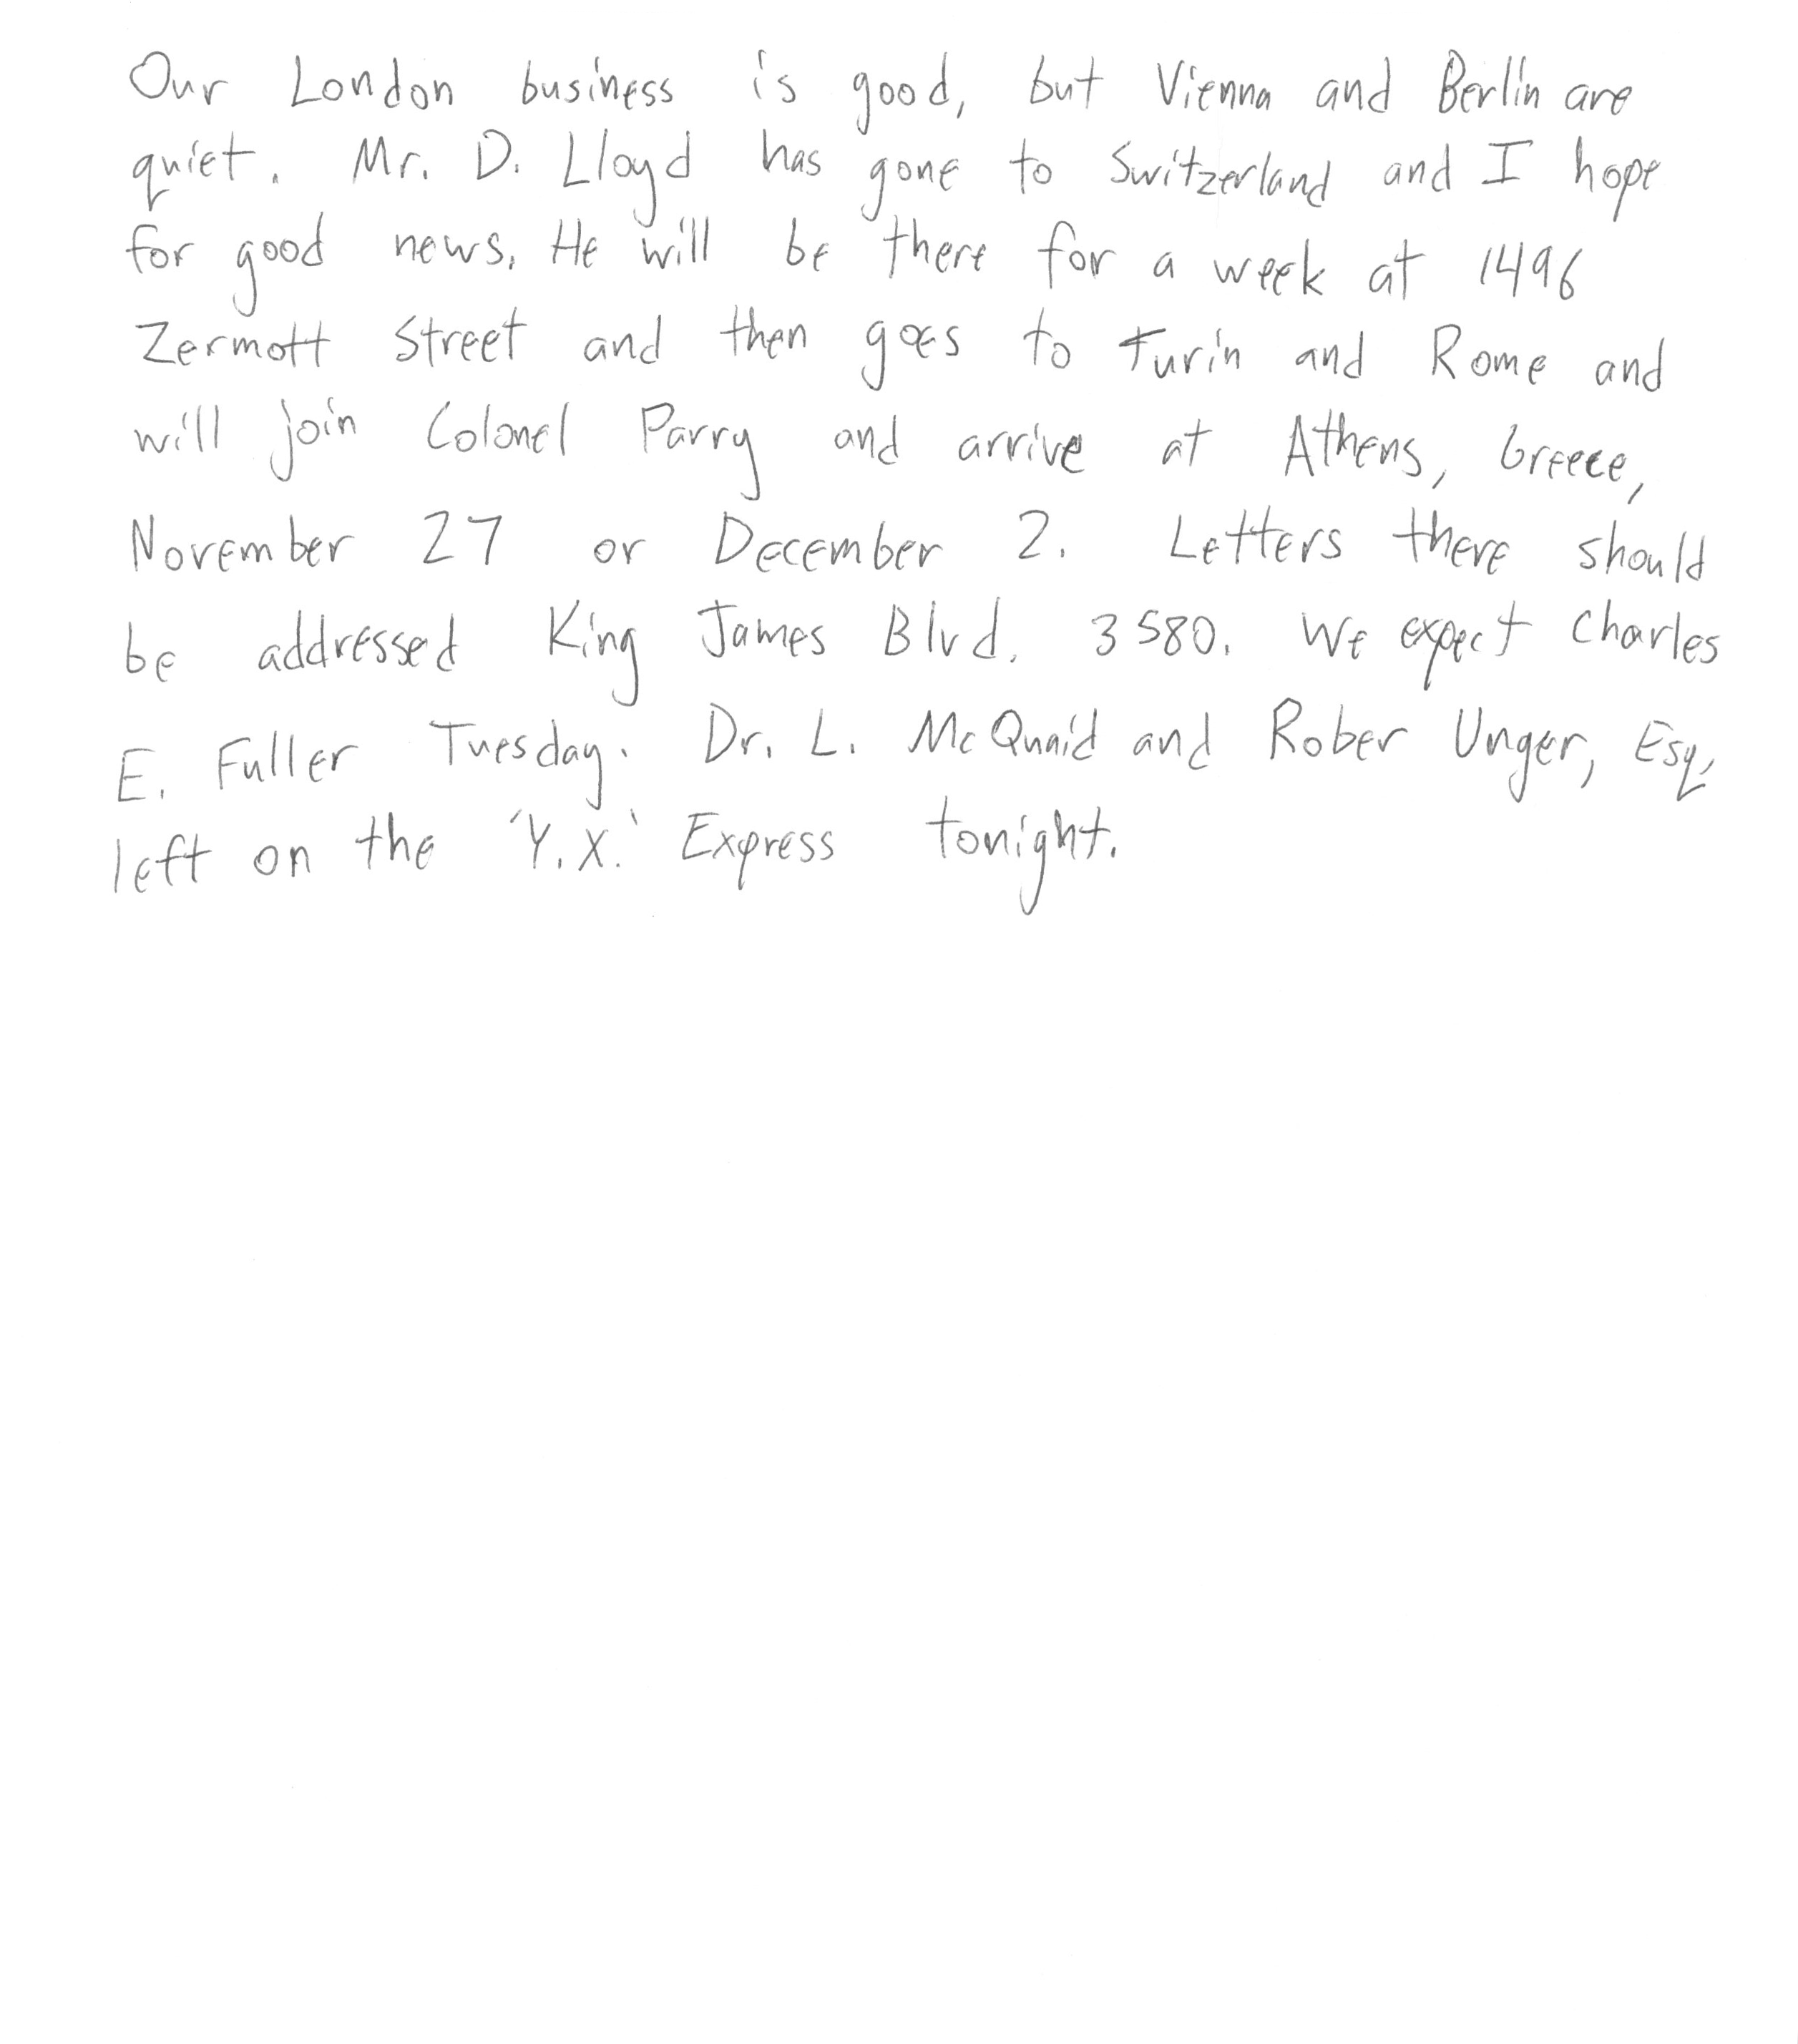 Our London business is good, but Vienna and Berlin are
quiet. Mr. D. Lloyd has gone to Switzerland and I hope
for good news. He will be there for a week at 1496
Zermott Street and then goes to Turin and Rome and
will join Colonel Parry and arrive at Athens, Greece,
November 27 or December 2. Letters there should
be addressed King James Blvd. 3580. We expect Charles
E. Fuller Tuesday. Dr. L. McQuaid and Rober Unger, Esq.,
left on the 'Y.X.' Express tonight.